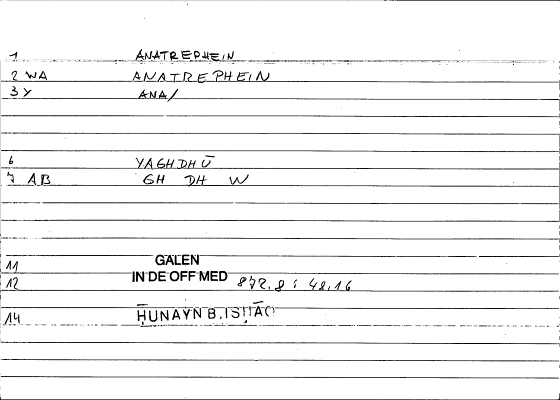 1 ANATREPHEIN
2 WA ANATREPHEIN
3 Y ANA/
6 YAGHDHŪ
7 AB GH DH W
11 GALEN
12 IN DE OFF MED 872.8 : 48.16
14 ḤUNAYN B. ISḤĀQ